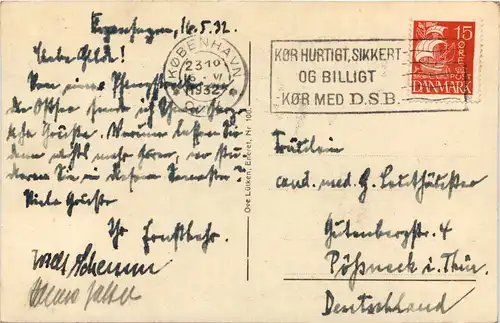 Kopenhagen, 16.5.32.
Liebe Hilde!
Von einer Pfingstfahrt
die Ostsee sende ich Ihnen herz-
liche Grüsse. Warum lassen Sie
denn nichts mehr hören, wo stu-
dieren Sie in diesem Semester?
Viele Grüsse
Ihr
KØBENHAVN
1932
KØR HURTIGT, SIKKERT
OG BILLIGT
KØR MED D.S.B.
15
ØRE
DANMARK
Ove Lütken, Eneret. Nr. 100
Fräulein
cand. med. G.
Gutenbergstr. 4
Pößneck i. Thür.
Deutschland